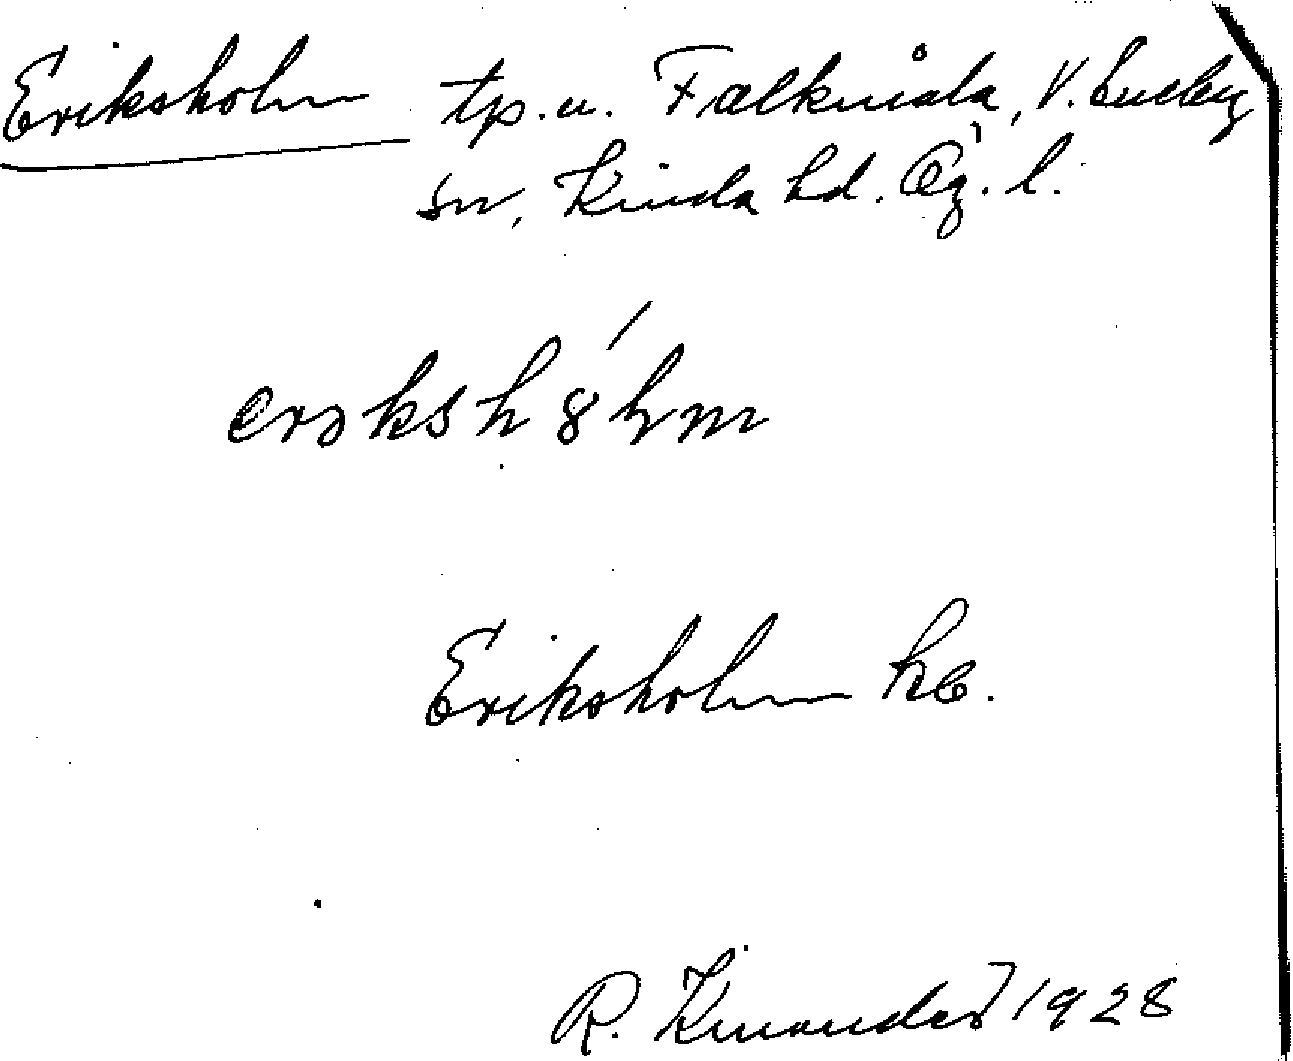 Eriksholm tp. u. Falkmåla, V. Eneby
sn, Kinda hd. Ög. l.
erəksh8´lm
Eriksholm kb.
R. Kinander 1928